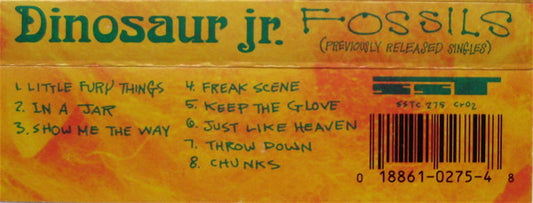 Dinosaur jr. FOSSILS
(PREVIOUSLY RELEASED SINGLES)
1. LITTLE FURY THINGS
2. IN A JAR
3. SHOW ME THE WAY
4. FREAK SCENE
5. KEEP THE GLOVE
6. JUST LIKE HEAVEN
7. THROW DOWN
8. CHUNKS
SST
SSTC 275 Cr02
0 18861-0275-4 8